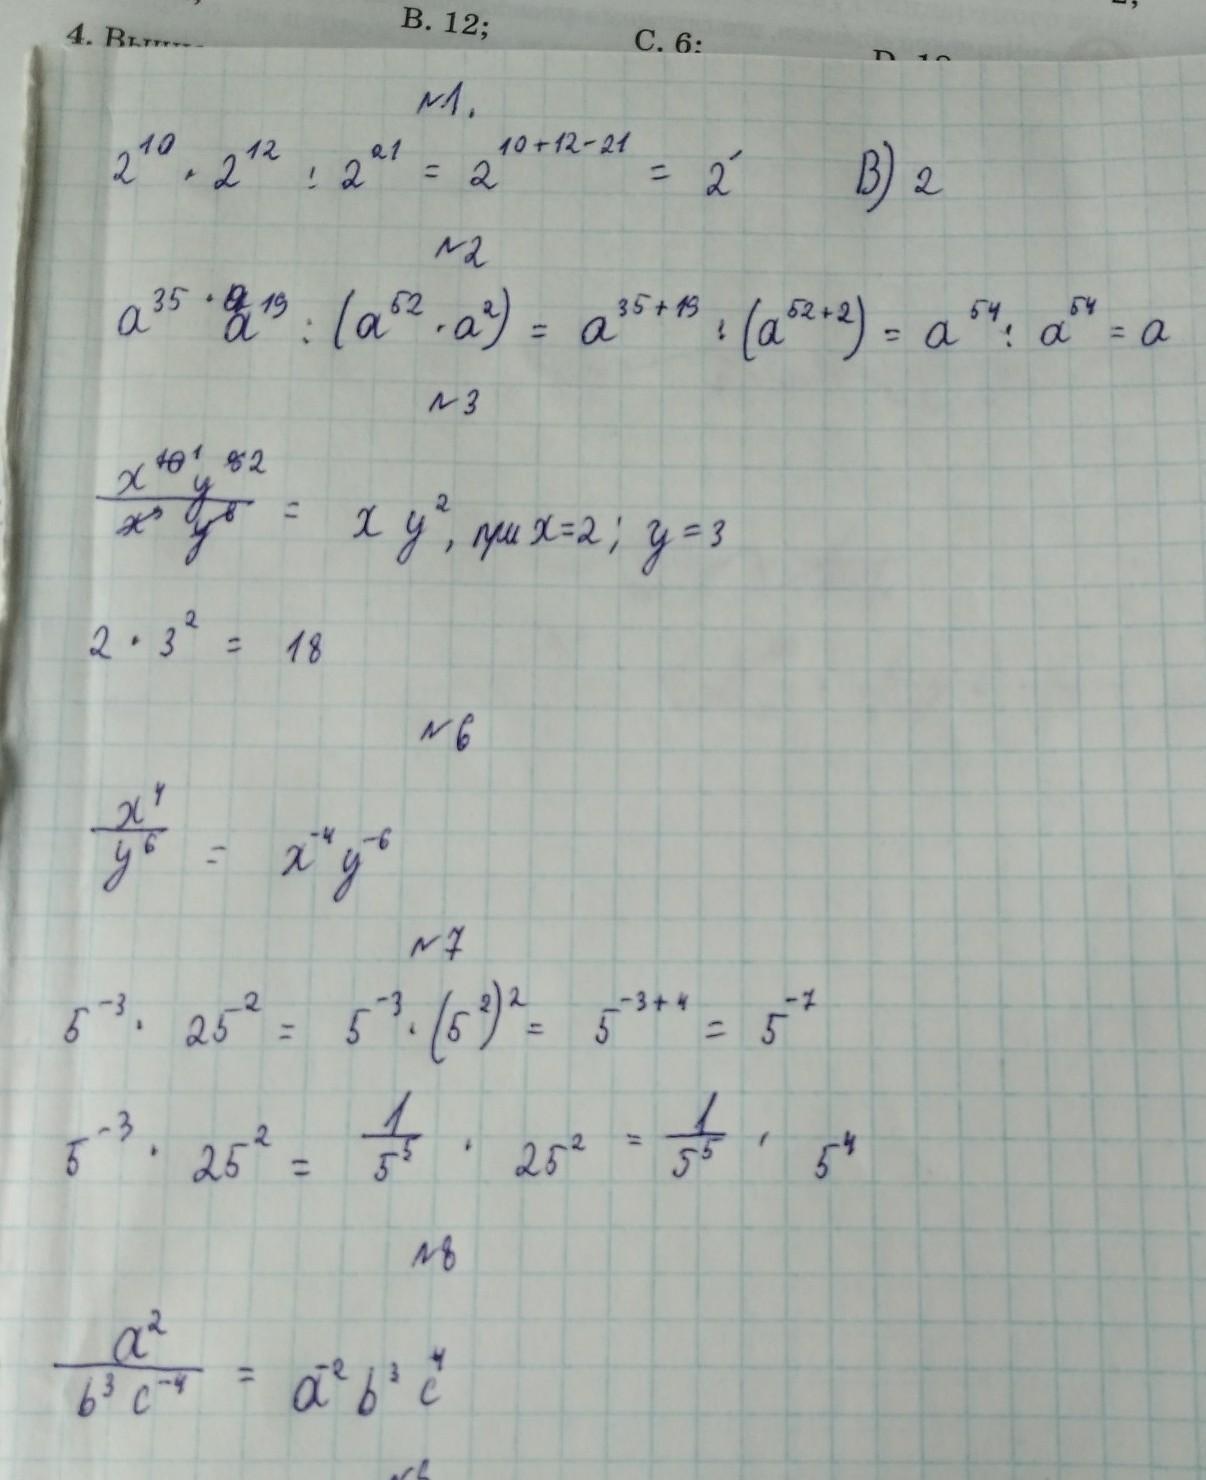 B. 12;
C. 6:
4. Вычис
№1.
2^10 · 2^12 : 2^21 = 2^(10+12-21) = 2^1 В) 2
№2
a^35 · a^19 : (a^52 · a^2) = a^(35+19) : (a^(52+2)) = a^54 : a^54 = a
№3
x^10 1 y^8 2 / x^9 y^6 = x y^2, при x=2; y=3
2 · 3^2 = 18
№6
x^4 / y^6 = x^-4 y^-6
№7
5^-3 · 25^-2 = 5^-3 · (5^2)^2 = 5^(-3+4) = 5^-7
5^-3 · 25^2 = 1/5^5 · 25^2 = 1/5^5 · 5^4
№8
a^2 / b^3 c^-4 = a^-2 b^3 c^4